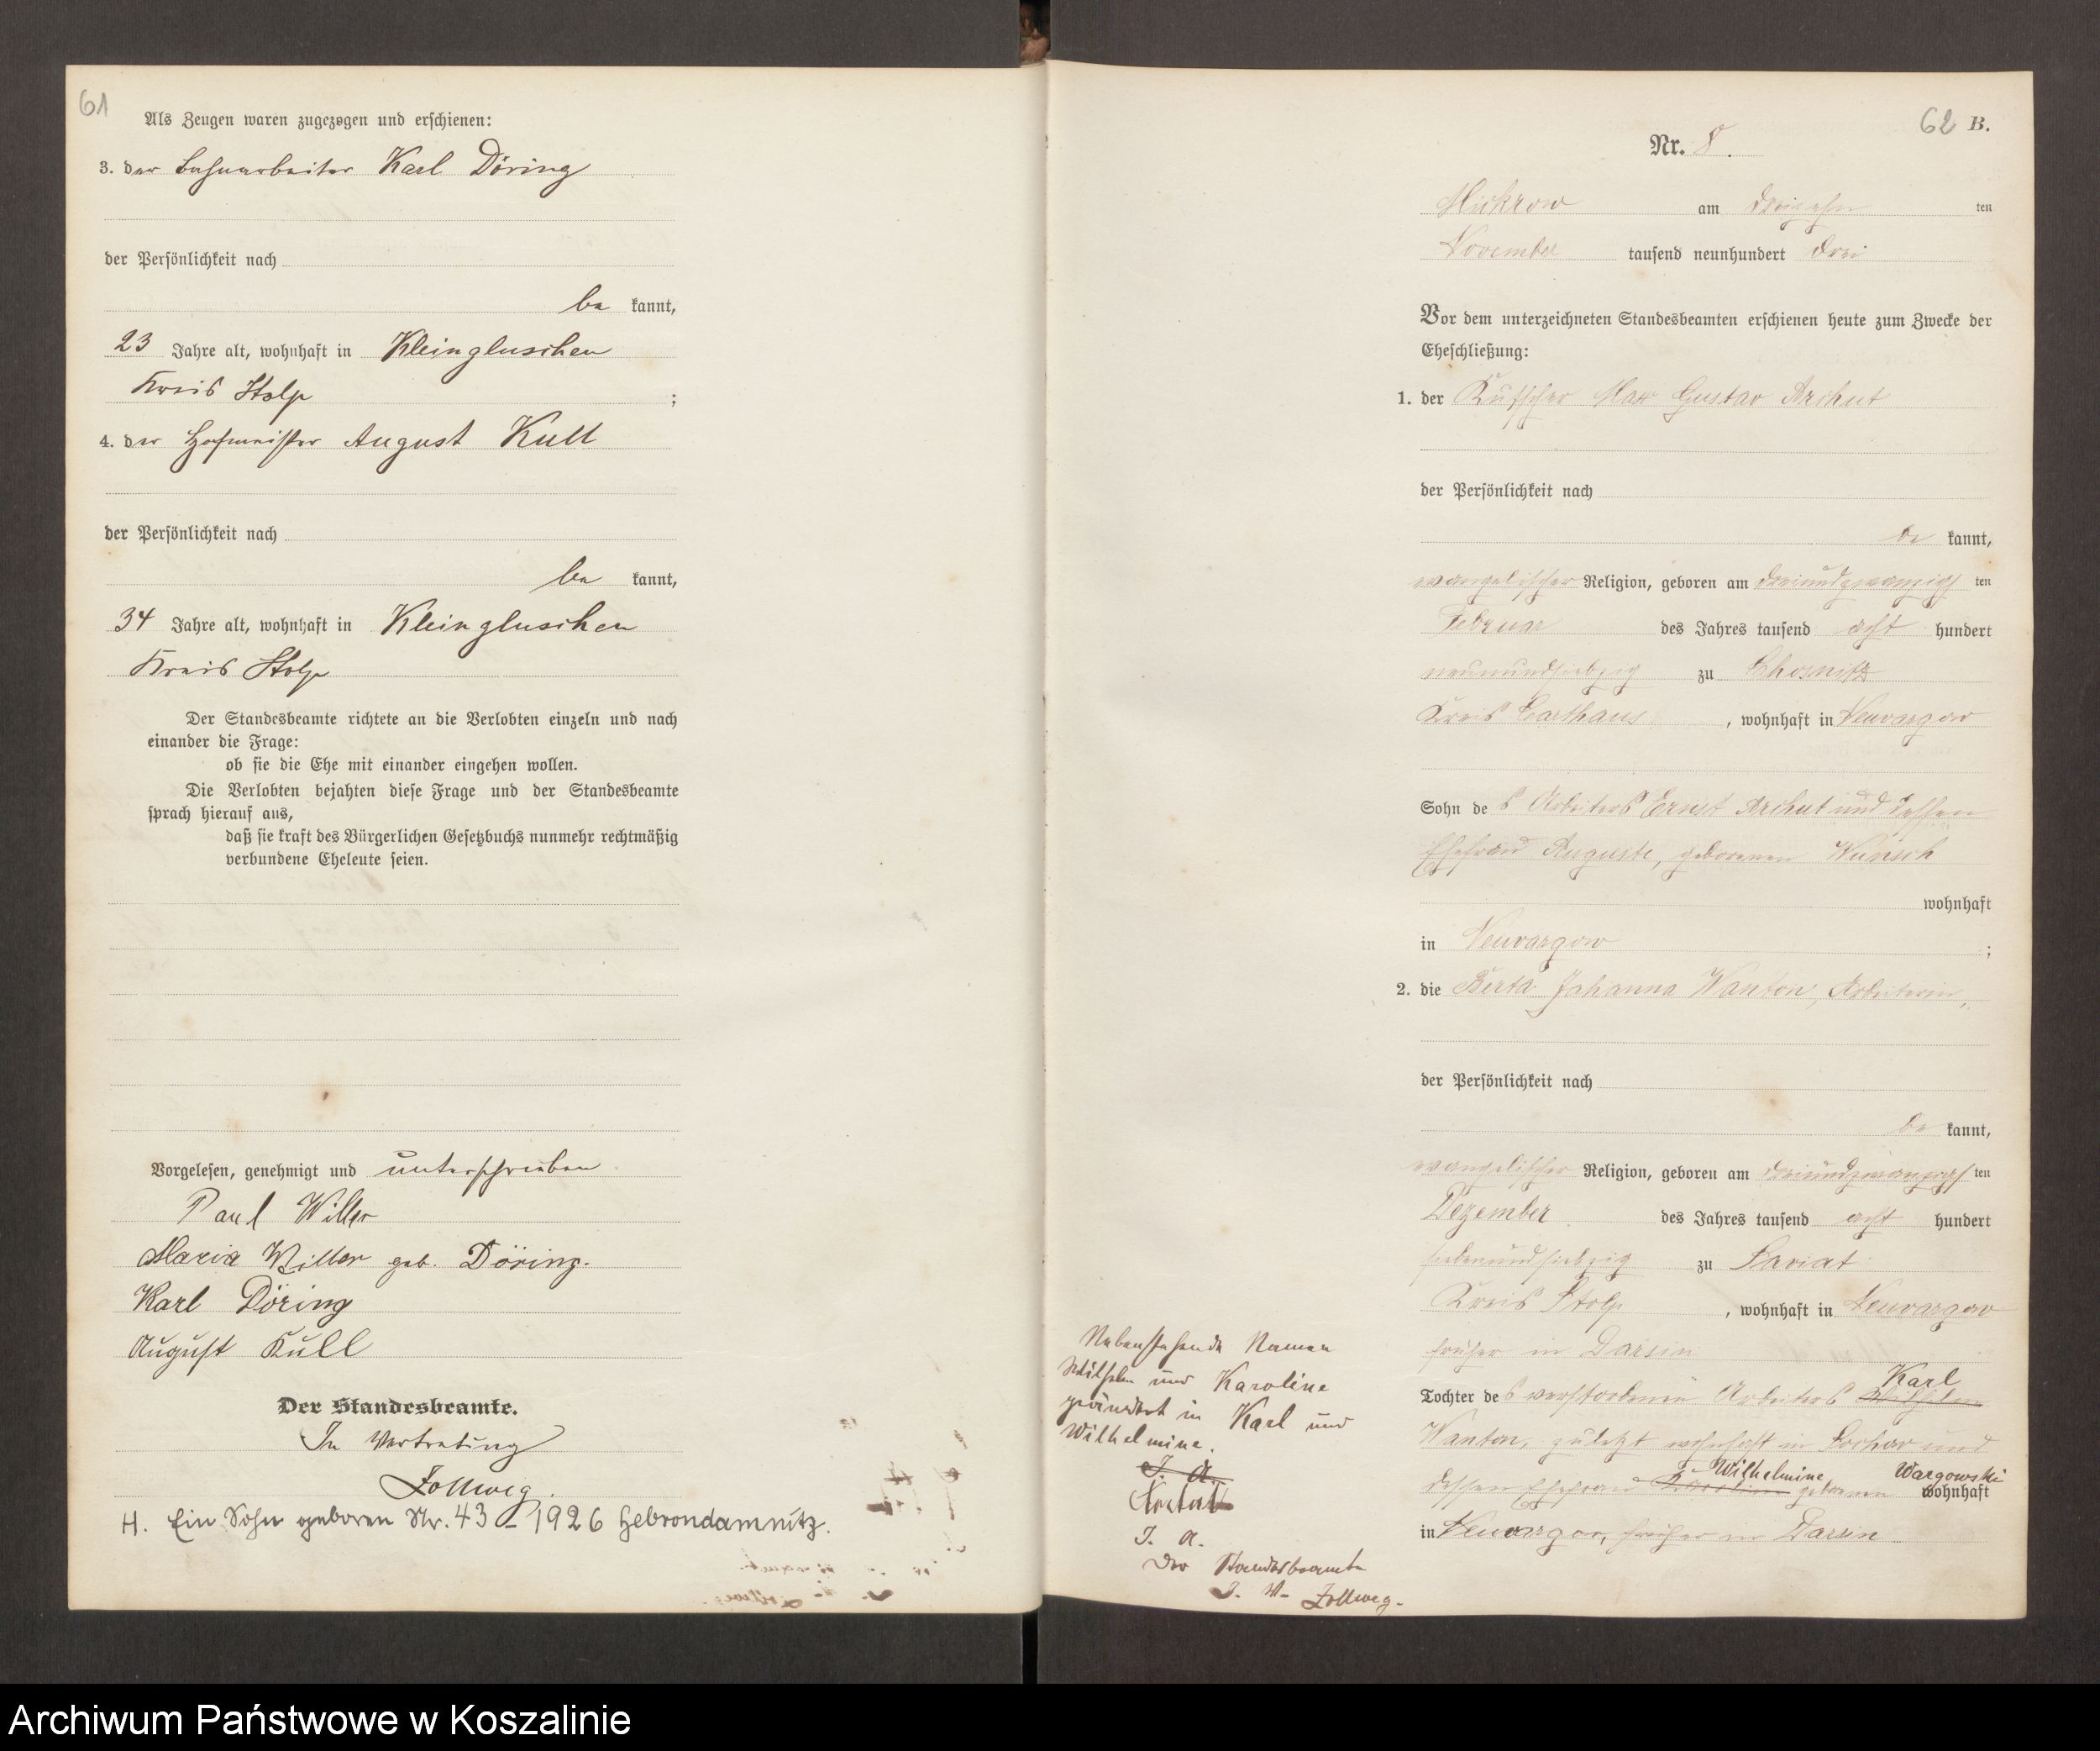 61
Als Zeugen waren zugezogen und erschienen:
3. der Bahnarbeiter Karl Döring
der Persönlichkeit nach
be kannt,
23 Jahre alt, wohnhaft in Kleingluschen
Kreis Stolp ;
4. der Hofmeister August Kull
der Persönlichkeit nach
be kannt,
34 Jahre alt, wohnhaft in Kleingluschen
Kreis Stolp
Der Standesbeamte richtete an die Verlobten einzeln und nach
einander die Frage:
ob sie die Ehe mit einander eingehen wollen.
Die Verlobten bejahten diese Frage und der Standesbeamte
sprach hierauf aus,
daß sie kraft des Bürgerlichen Gesetzbuchs nunmehr rechtmäßig
verbundene Eheleute seien.
Vorgelesen, genehmigt und unterschrieben
Paul Willer
Maria Willer geb. Döring.
Karl Döring
August Kull
Der Standesbeamte.
In Vertretung
Zollweg.
H. Ein Sohn geboren Nr. 43 - 1926 Hebrondamnitz.
62 B.
Nr. 8.
Mickrow am dreizehn ten
November tausend neunhundert drei
Vor dem unterzeichneten Standesbeamten erschienen heute zum Zwecke der
Eheschließung:
1. der Kutscher Max Gustav Archut
der Persönlichkeit nach
be kannt,
evangelischer Religion, geboren am dreiundzwanzigs ten
Februar des Jahres tausend acht hundert
neunundsiebzig zu Chosnitz
Kreis Carthaus, wohnhaft in Neuvargow
Sohn des Arbeiters Ernst Archut und dessen
Ehefrau Auguste, geborenen Wunsch
wohnhaft
in Neuvargow ;
2. die Berta Johanna Wanton, Arbeiterin,
der Persönlichkeit nach
be kannt,
evangelischer Religion, geboren am dreiundzwanzigs ten
Dezember des Jahres tausend acht hundert
siebenundsiebzig zu Saviat
Kreis Stolp, wohnhaft in Neuvargow
früher in Darsin
Karl
Tochter des verstorbenen Arbeiters Wilhelm
Wanton, zuletzt wohnhaft in und
Wilhelmine Wargowski
dessen Ehefrau Karoline geborenen wohnhaft
in Neuvargow, früher in Darsin
Nebenstehende Namen
Wilhelm und Karoline
geändert in Karl und
Wilhelmine.
I. A.
I. A.
Der Standesbeamte
I. V. Zollweg.
Archiwum Państwowe w Koszalinie